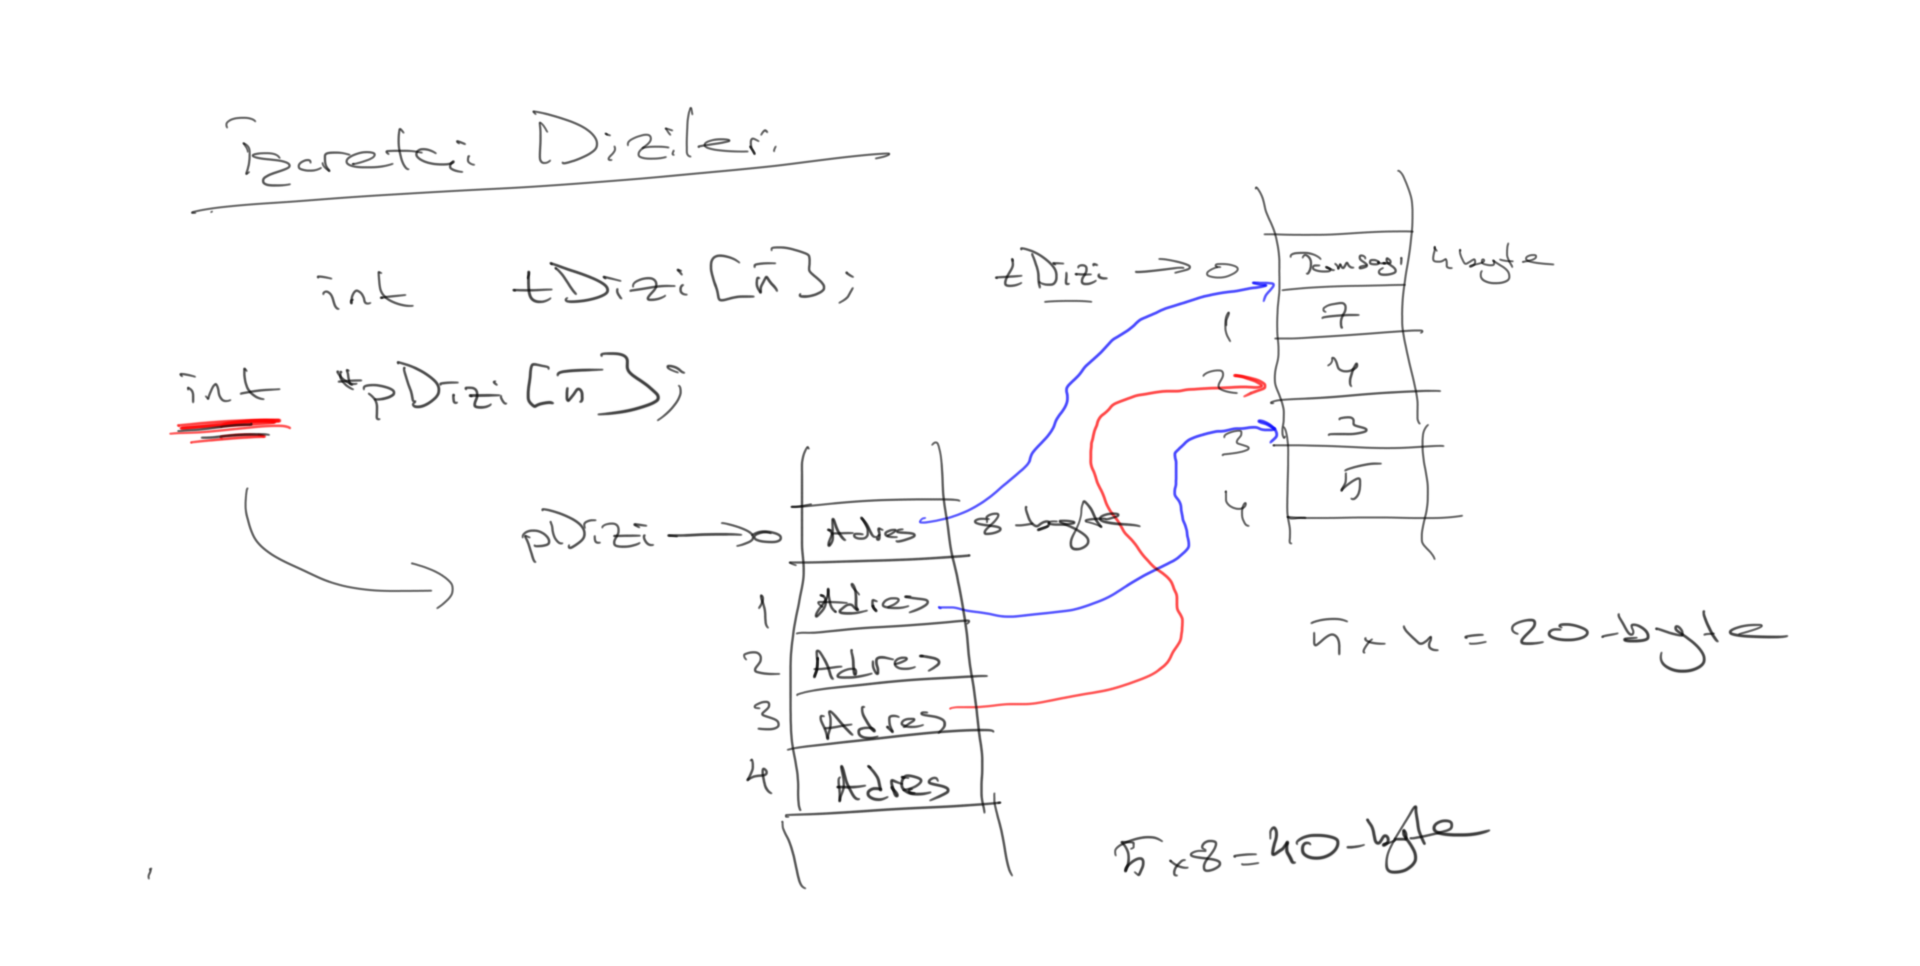 İşaretçi Dizileri
int tDizi[5];
int *pDizi[5];
tDizi → 0 Tamsayı 4 byte
1 7
2 4
3 3
4 5
pDizi → 0 Adres 8-byte
1 Adres
2 Adres
3 Adres
4 Adres
5 x 4 = 20-byte
5 x 8 = 40-byte